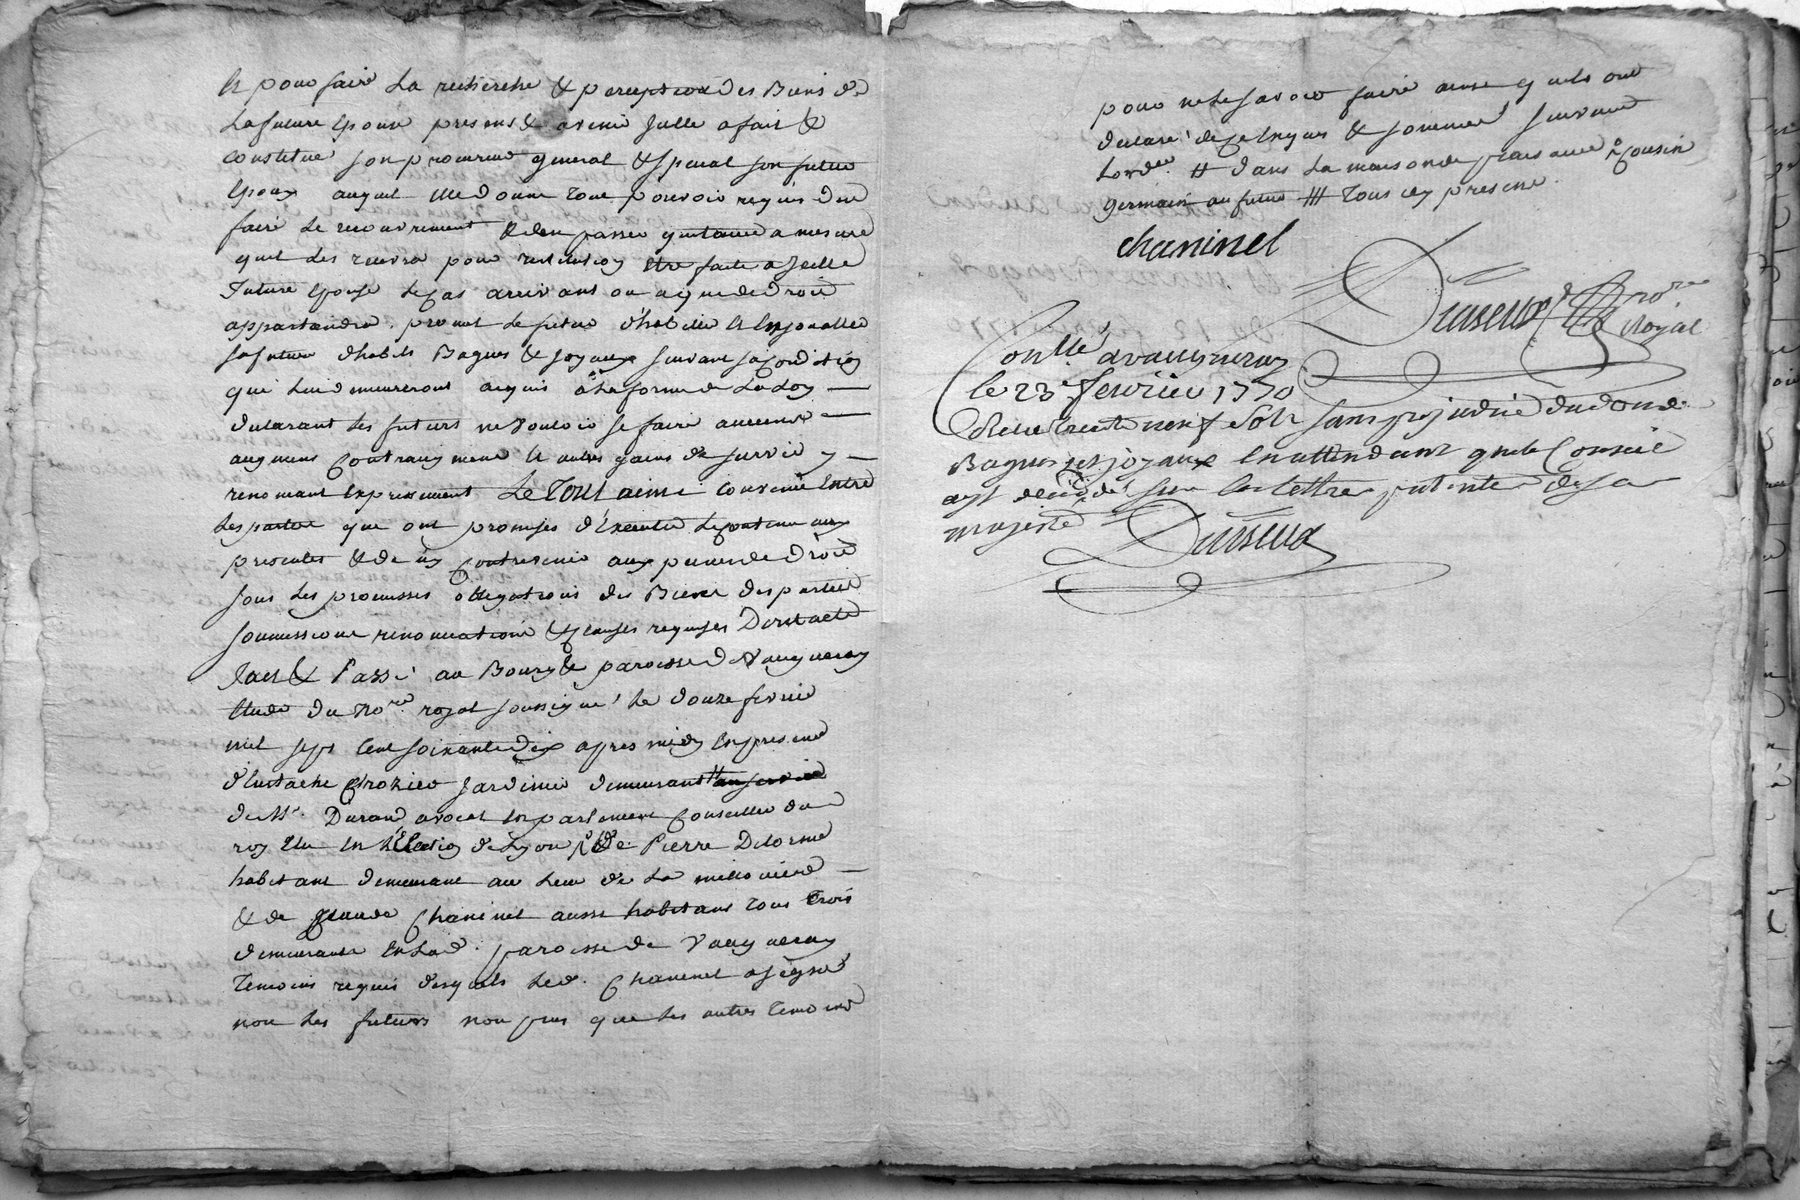 Et pour faire La recherche & perception des Biens de
La future Epouse presens & avenir Jcelle a fait &
Constitué son procureur general & special son futur
Epoux auquel Elle donne tout pouvoir requis d'en
faire Le recouvrement & d'en passer quittance a mesure
quil Les recevra pour restitution Etre faite a Jcelle
future Epouse Le cas arrivant ou a qui de droit
appartiendra. promet Le futur d'habiller & Enjoualler
sa future d'habits Bagues & Joyaux suivant sa condition
qui Lui demeureront acquis à La forme de La Loy
declarant Les futurs ne vouloir se faire aucune
augment Contraugment & autres gains de survie y
renonçant Expressement Le Tout ainsi convenu Entre
Les parties que ont promises d'Executer Le contenu aux
presentes & de ny contrevenir aux peines de Droit
sous Les promesses obligations des Biens des parties
soumissions renonciations & clauses requises Dont acte
fait & Passé au Bourg & paroisse de Vaugneray
Etude du No.re royal soussigné Le douze fevrier
mil sept Cent soixante dix apres midy En presence
d'Eustache Chozier Jardinier demeurant # au service
de Mr. Durand avocat En parlement Conseiller du
roy Elu En L'Election de Lyon & de Pierre Delorme
habitant demeurant au Lieu de La milloniere
& de Claude Chaninel aussi habitant tous trois
demeurants En Lad. paroisse de Vaugneray
Temoins requis desquels Led. Chaninel a signé
non Les futurs non plus que Les autres temoins
pour ne Le savoir faire ainsi quils ont
declaré de ce Enquis & sommés suivant
Lord.ce # dans La maison de plaisance Cousin
germain au futur ### tous cy present.
chaninel
No.re
Royal
Con.lle a vaugneray
le 23 fevrier 1770
Reçu trente neuf sols sans prejudice du don de
Bagues et joyaux En attendant que le Conseil
ayt decidé sur Les lettres patentes de sa
majesté